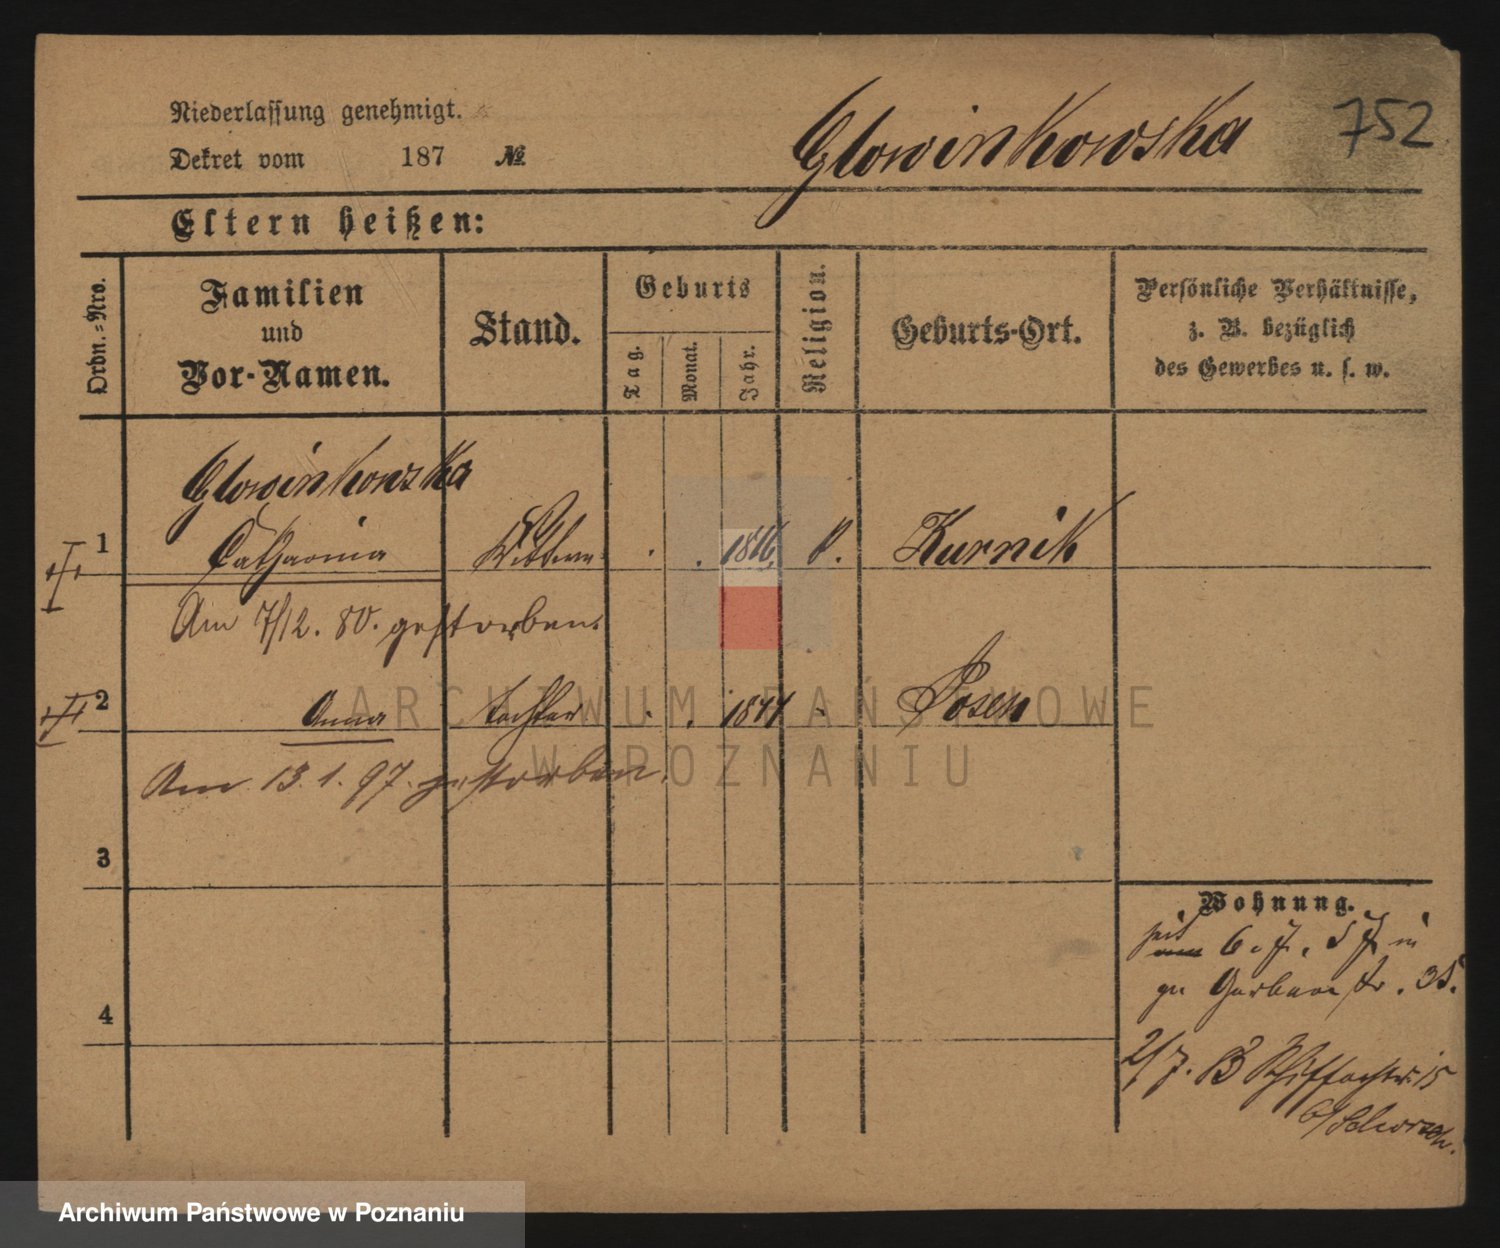 Niederlassung genehmigt.
Dekret vom 187 №
Glowinkowska
752
Eltern heißen:
Ordn.-Nro.
Familien
und
Vor-Namen.
Stand.
Geburts
Tag.
Monat.
Jahr.
Religion.
Geburts-Ort.
Persönliche Verhältnisse,
z. B. bezüglich
des Gewerbes u. s. w.
Glowinkowska
1 Catharina Wittwe 1816 Kurnik
Am 7/12. 80. gestorben.
2 Anna Tochter 1841 Posen
Am 13.1.97. gestorben.
3
4
Wohnung.
seit 6. in
Gerberstr.
2/7. 13 Schifferstr. 15
ARCHIWUM PAŃSTWOWE
W POZNANIU
Archiwum Państwowe w Poznaniu